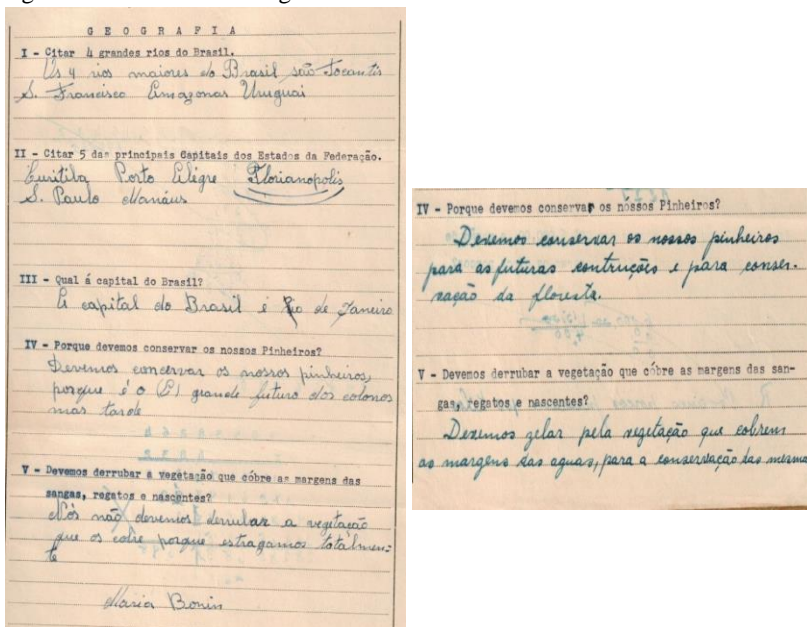 G E O G R A F I A
I - Citar 4 grandes rios do Brasil.
Os 4 rios maiores do Brasil são Tocantis
S. Francisco Amazonas Uruguai
II - Citar 5 das principais Capitais dos Estados da Federação.
Curitiba Porto Elegre Florianopolis
S. Paulo Manáus
III - Qual á capital do Brasil?
A capital do Brasil é Rio de Janeiro
IV - Porque devemos conservar os nossos Pinheiros?
Devemos concervar os nossos pinheiros,
porque é o (E) grande futuro dos colonos
mas tarde
V - Devemos derrubar a vegetação que cóbre as margens das
sangas, regatos e nascentes?
Nós não devemos derrubar a vegitação
que os cobre porque estragamos totalmen-
te
Maria Bonin
IV - Porque devemos conservar os nossos Pinheiros?
Devemos conservar os nossos pinheiros
para as futuras contruções e para conser-
vação da floresta.
V - Devemos derrubar a vegetação que cóbre as margens das san-
gas, regatos e nascentes?
Devemos zelar pela vegitação que cobrem
as margens das aguas, para a conservação das mesma